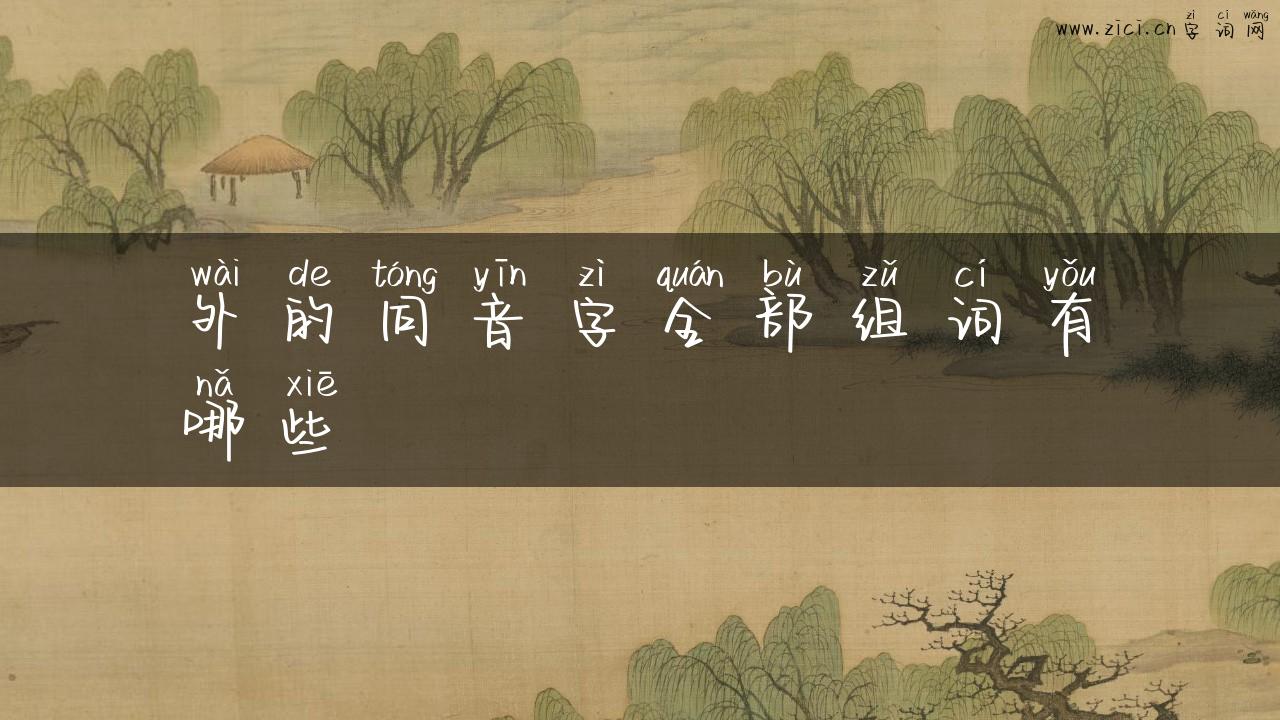 zì cí wǎng
www.zici.cn 字词网
wài de tóng yīn zì quán bù zǔ cí yǒu
外的同音字全部组词有
nǎ xiē
哪些